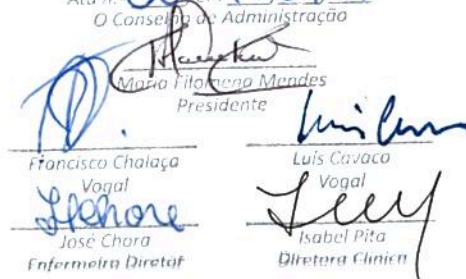 O Conselho de Administração
Maria Filomena Mendes
Presidente
Francisco Chalaça
Vogal
Luis Cavaco
Vogal
José Chora
Enfermeiro Diretor
Isabel Pita
Diretora Clínica